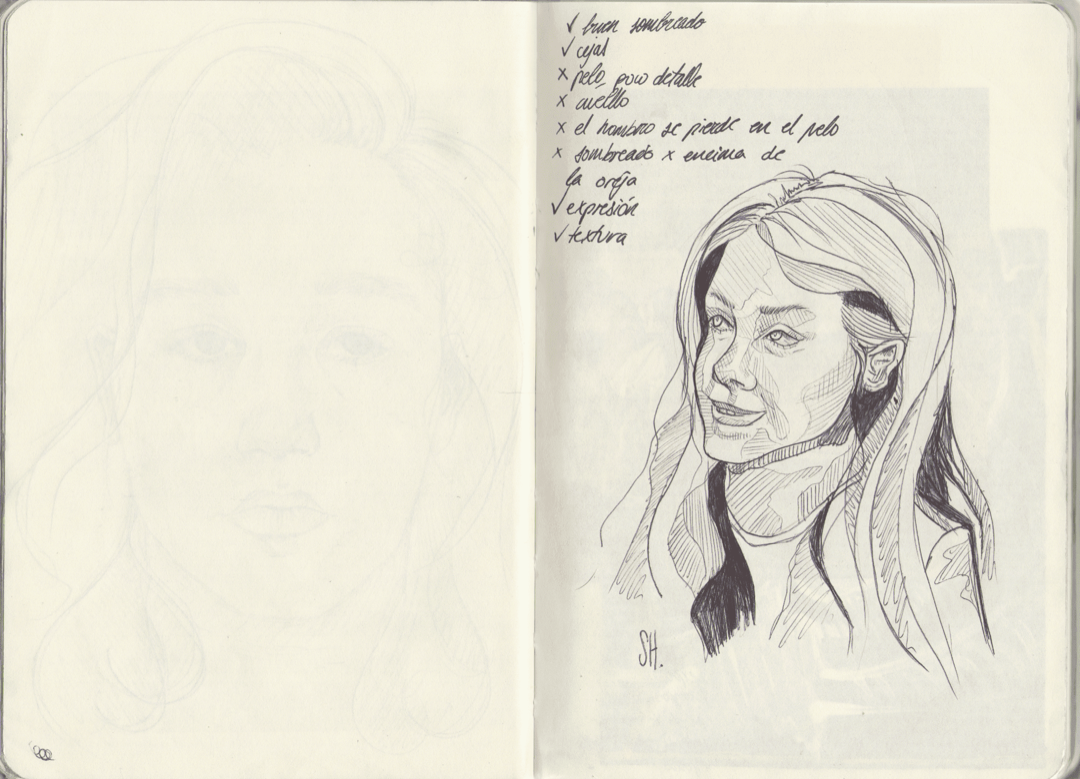 ✓ buen sombreado
✓ cejas
x pelo, poco detalle
x cuello
x el hombro se pierde en el pelo
x sombreado x encima de
la oreja
✓ expresión
✓ textura
SH.